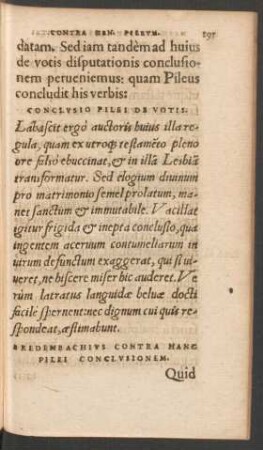 CONTRA HEN. PILEUM. 195
datam. Sed iam tandèm ad huius
de votis disputationis conclusio-
nem perueniemus: quam Pileus
concludit his verbis:
CONCLVSIO PILEI DE VOTIS.
Labascit ergò auctoris huius illa re-
gula, quam ex utroq; testamẽto pleno
ore falsò ebuccinat, & in illã Lesbiã
transformatur. Sed elogium diuinum
pro matrimonio semel prolatum, ma-
net sanctum & immutabile. Vacillat
igitur frigida & inepta conclusio, qua
ingentem aceruum contumeliarum in
uirum defunctum exaggerat, qui si ui-
ueret, ne hiscere miser hic auderet. Ve
rùm latratus languidæ beluæ docti
facilè spernent: nec dignum cui quis re-
spondeat, æstimabunt.
BREDENBACHIVS CONTRA HANC
PILEI CONCLVSIONEM.
Quid